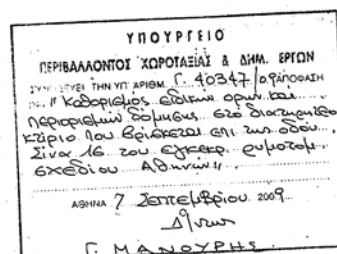 ΥΠΟΥΡΓΕΙΟ
ΠΕΡΙΒΑΛΛΟΝΤΟΣ ΧΩΡΟΤΑΞΙΑΣ & ΔΗΜ. ΕΡΓΩΝ
ΣΥΝΟΔΕΥΕΙ ΤΗΝ ΥΠ' ΑΡΙΘΜ. Γ. 40347/09 ΑΠΟΦΑΣΗ
"Καθορισμός ειδικών όρων και
περιορισμών δόμησης στο διατηρητέο
κτίριο που βρίσκεται επί της οδού
Σίνα 16 του εγκεκρ. ρυμοτομ.
σχεδίου Αθηνών"
ΑΘΗΝΑ 7 Σεπτεμβρίου 2009
Γ. ΜΑΝΟΥΡΗΣ